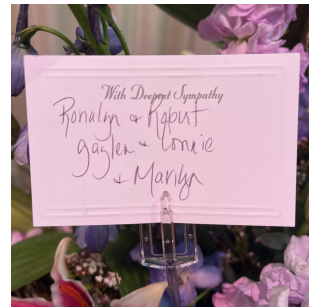 With Deepest Sympathy
Ronalyn & Robert
Gaylen & Lonnie
& Marilyn